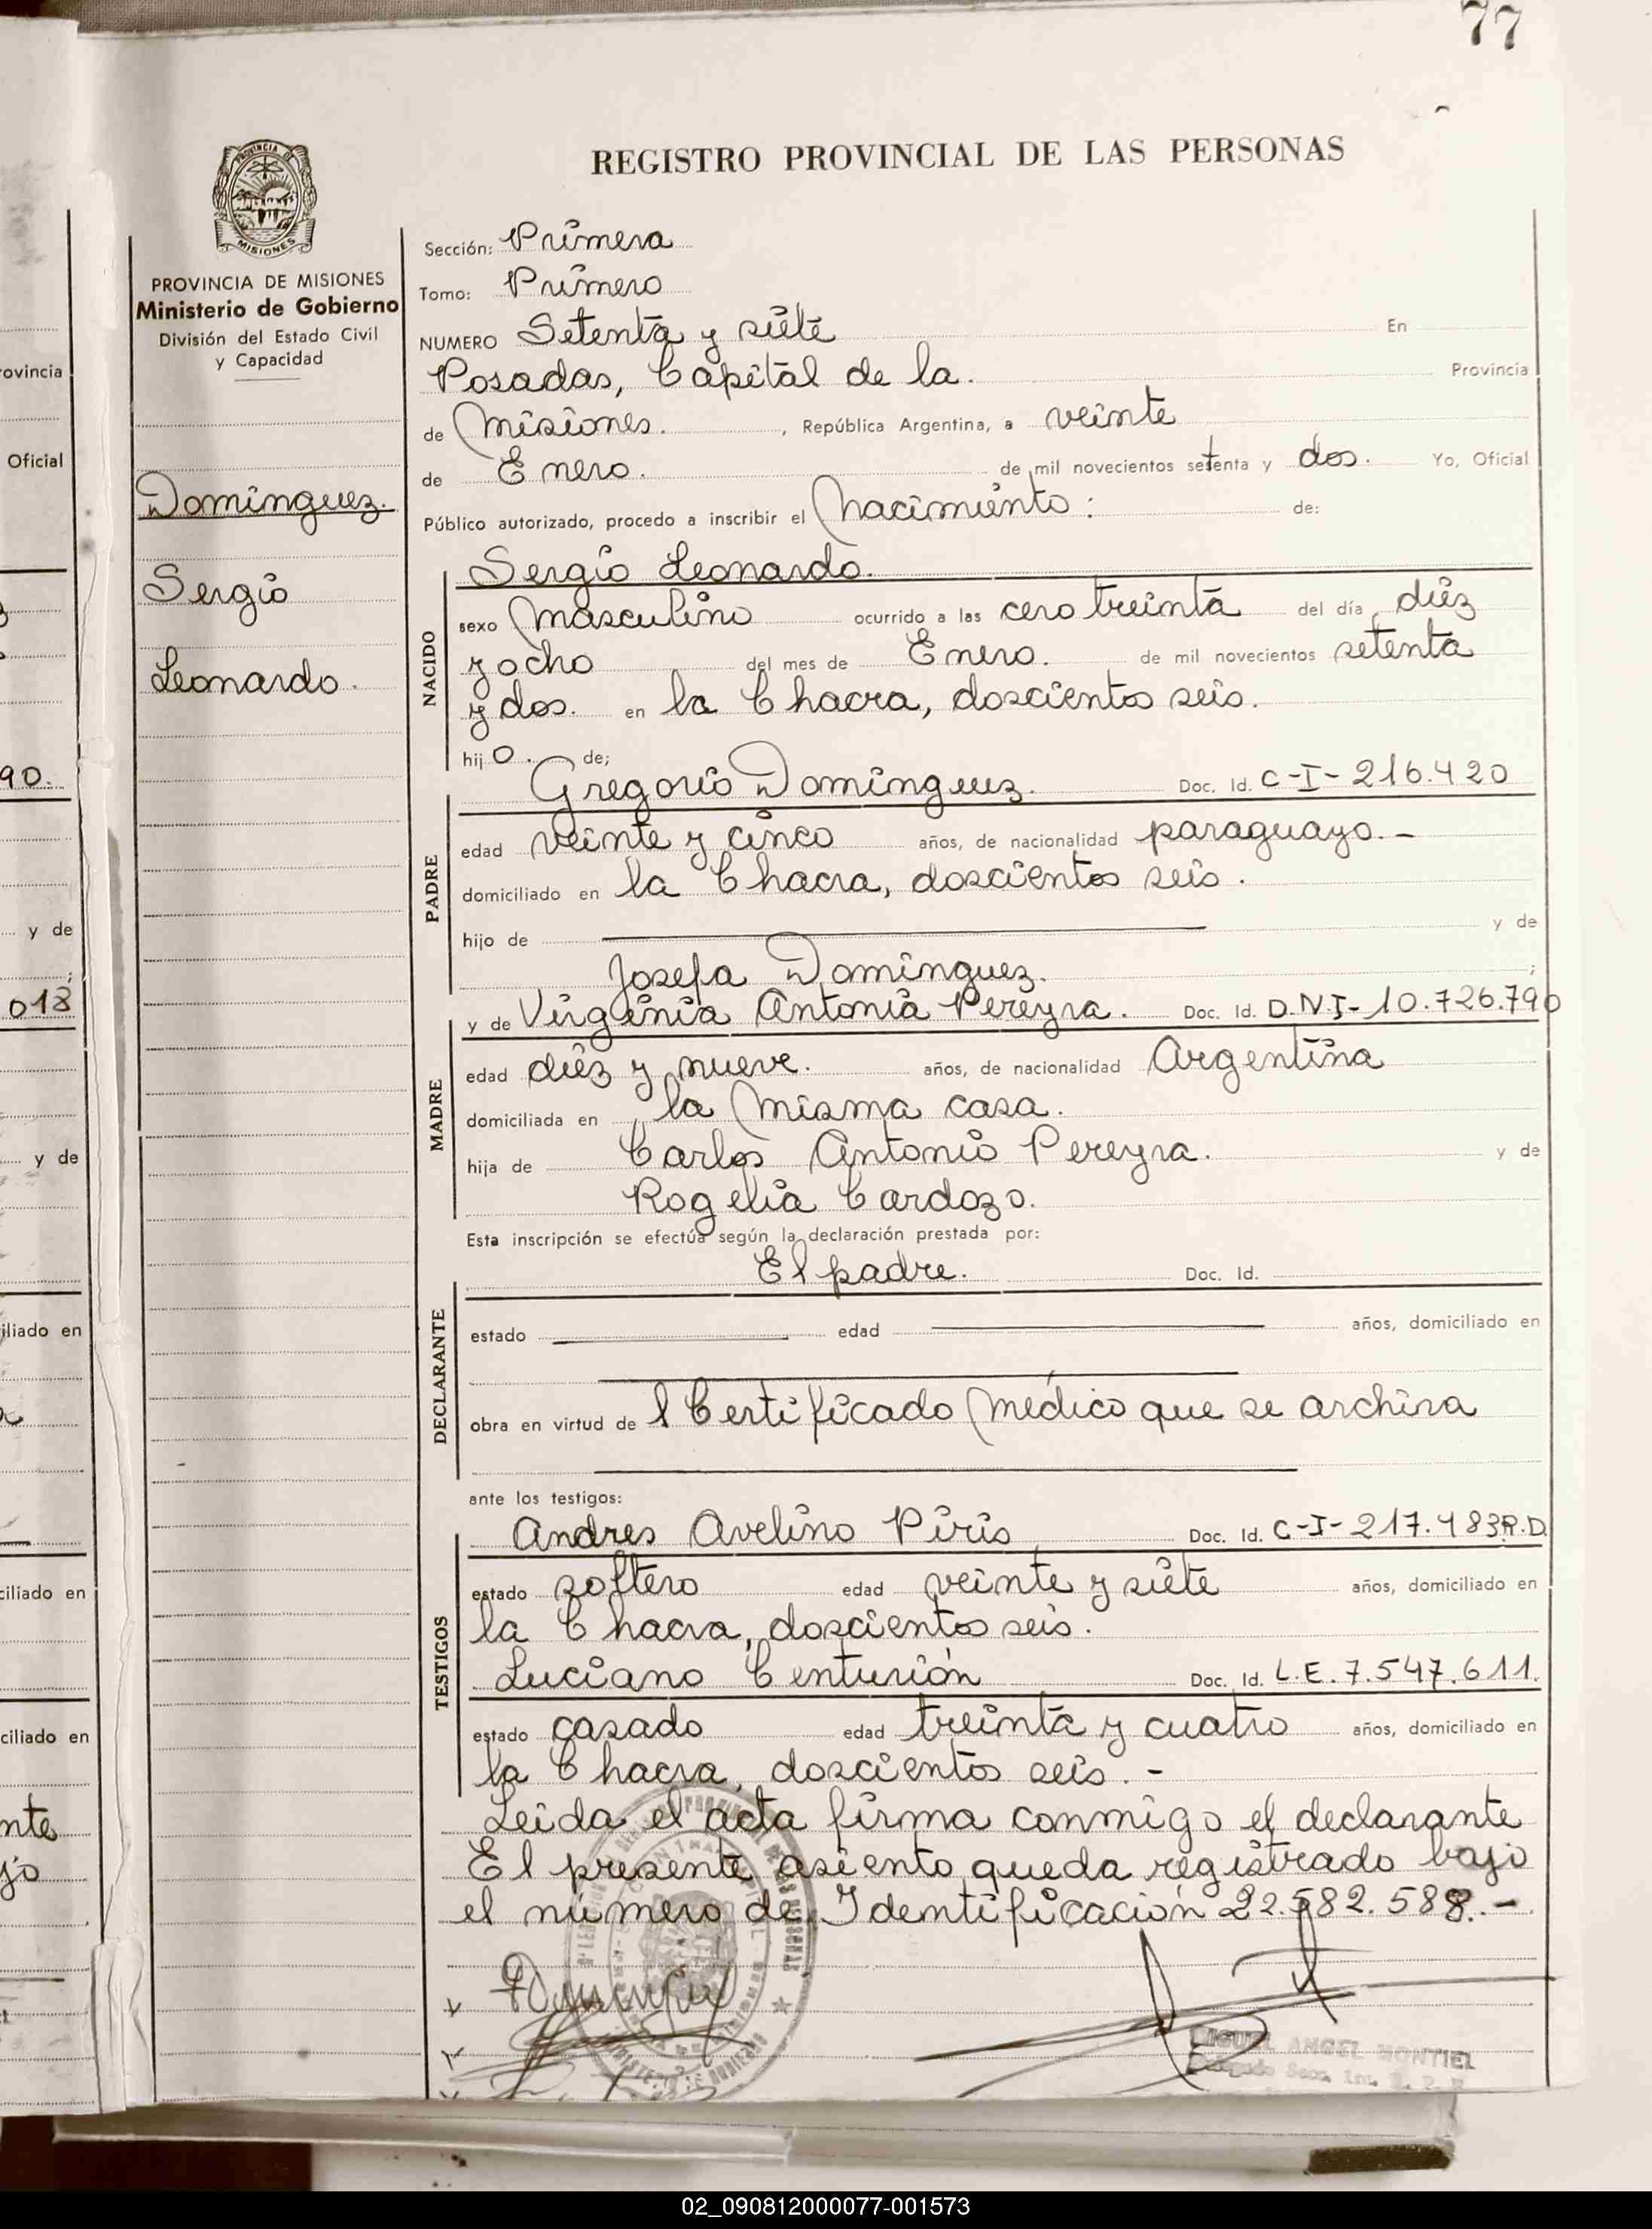 77
REGISTRO PROVINCIAL DE LAS PERSONAS
PROVINCIA DE MISIONES
Ministerio de Gobierno
División del Estado Civil
y Capacidad
Dominguez.
Sergio
Leonardo.
Sección: Primera
Tomo: Primero
NUMERO Setenta y siete En
Posadas, Capital de la. Provincia
de Misiones. , República Argentina, a veinte
de Enero. de mil novecientos setenta y dos. Yo, Oficial
Público autorizado, procedo a inscribir el Nacimiento: de:
NACIDO
Sergio Leonardo.
sexo Masculino ocurrido a las cero treinta del día diéz
y ocho del mes de Enero. de mil novecientos setenta
y dos. en la Chacra, doscientos seis.
hijo. de;
PADRE
Gregorio Dominguez. Doc. Id. C-I-216.420
edad veinte y cinco años, de nacionalidad paraguayo.-
domiciliado en la Chacra, doscientos seis.
hijo de y de
Josefa Dominguez. ;
MADRE
y de Virginia Antonia Pereyra. Doc. Id. D.N.I-10.726.790
edad diéz y nueve. años, de nacionalidad Argentina
domiciliada en la misma casa.
hija de Carlos Antonio Pereyra. y de
Rogelia Cardozo.
Esta inscripción se efectúa según la declaración prestada por:
DECLARANTE
El padre. Doc. Id.
estado edad años, domiciliado en
obra en virtud de l Certificado Médico que se archiva
ante los testigos:
TESTIGOS
Andres Avelino Piris Doc. Id. C-I-217.483R.D.
estado soltero edad veinte y siete años, domiciliado en
la Chacra, doscientos seis.
Luciano Centurión Doc. Id. L.E.7.547.611.
estado casado edad treinta y cuatro años, domiciliado en
la Chacra, doscientos seis.-
Leida el acta firma conmigo el declarante
El presente asiento queda registrado bajo
el número de Identificación 22.582.588.-
MIGUEL ANGEL MONTIEL
02_090812000077-001573